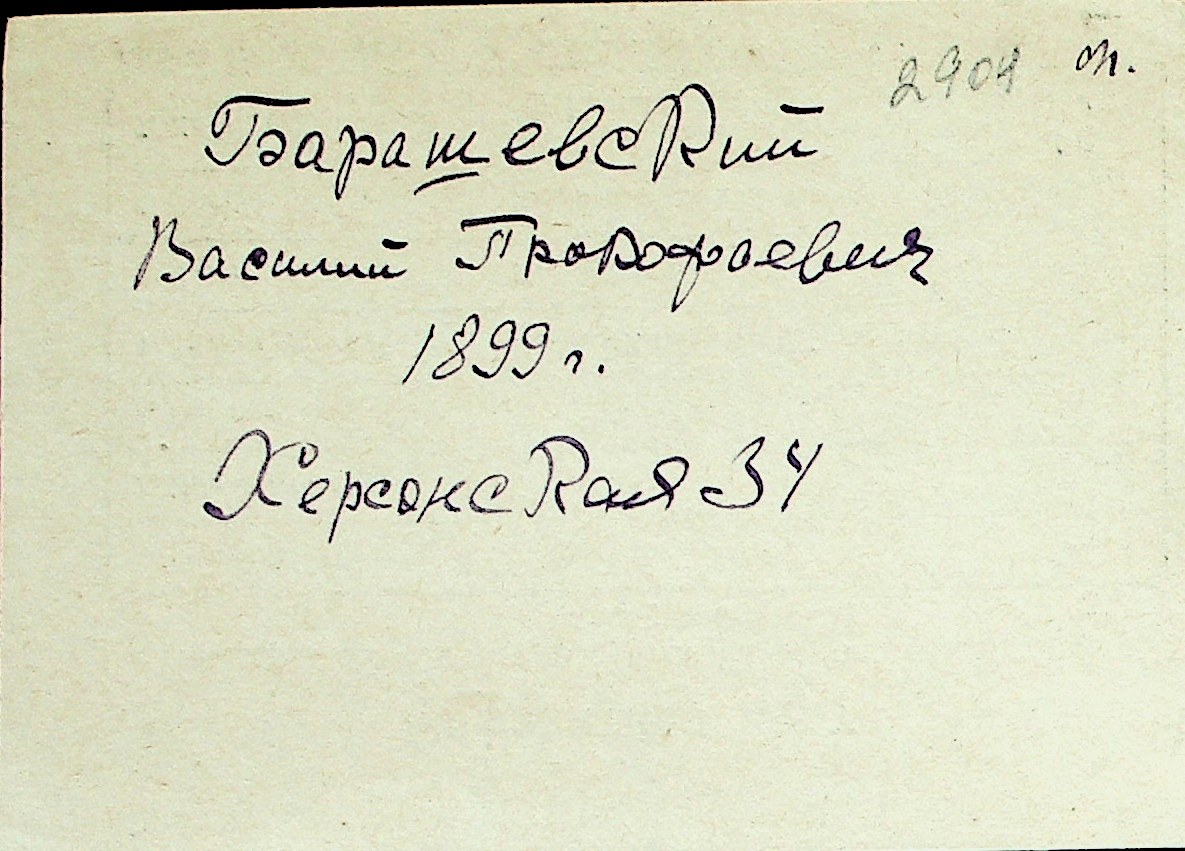 2904
Барашевский
Василий Прокофьевич
1899 г.
Херсонская 34